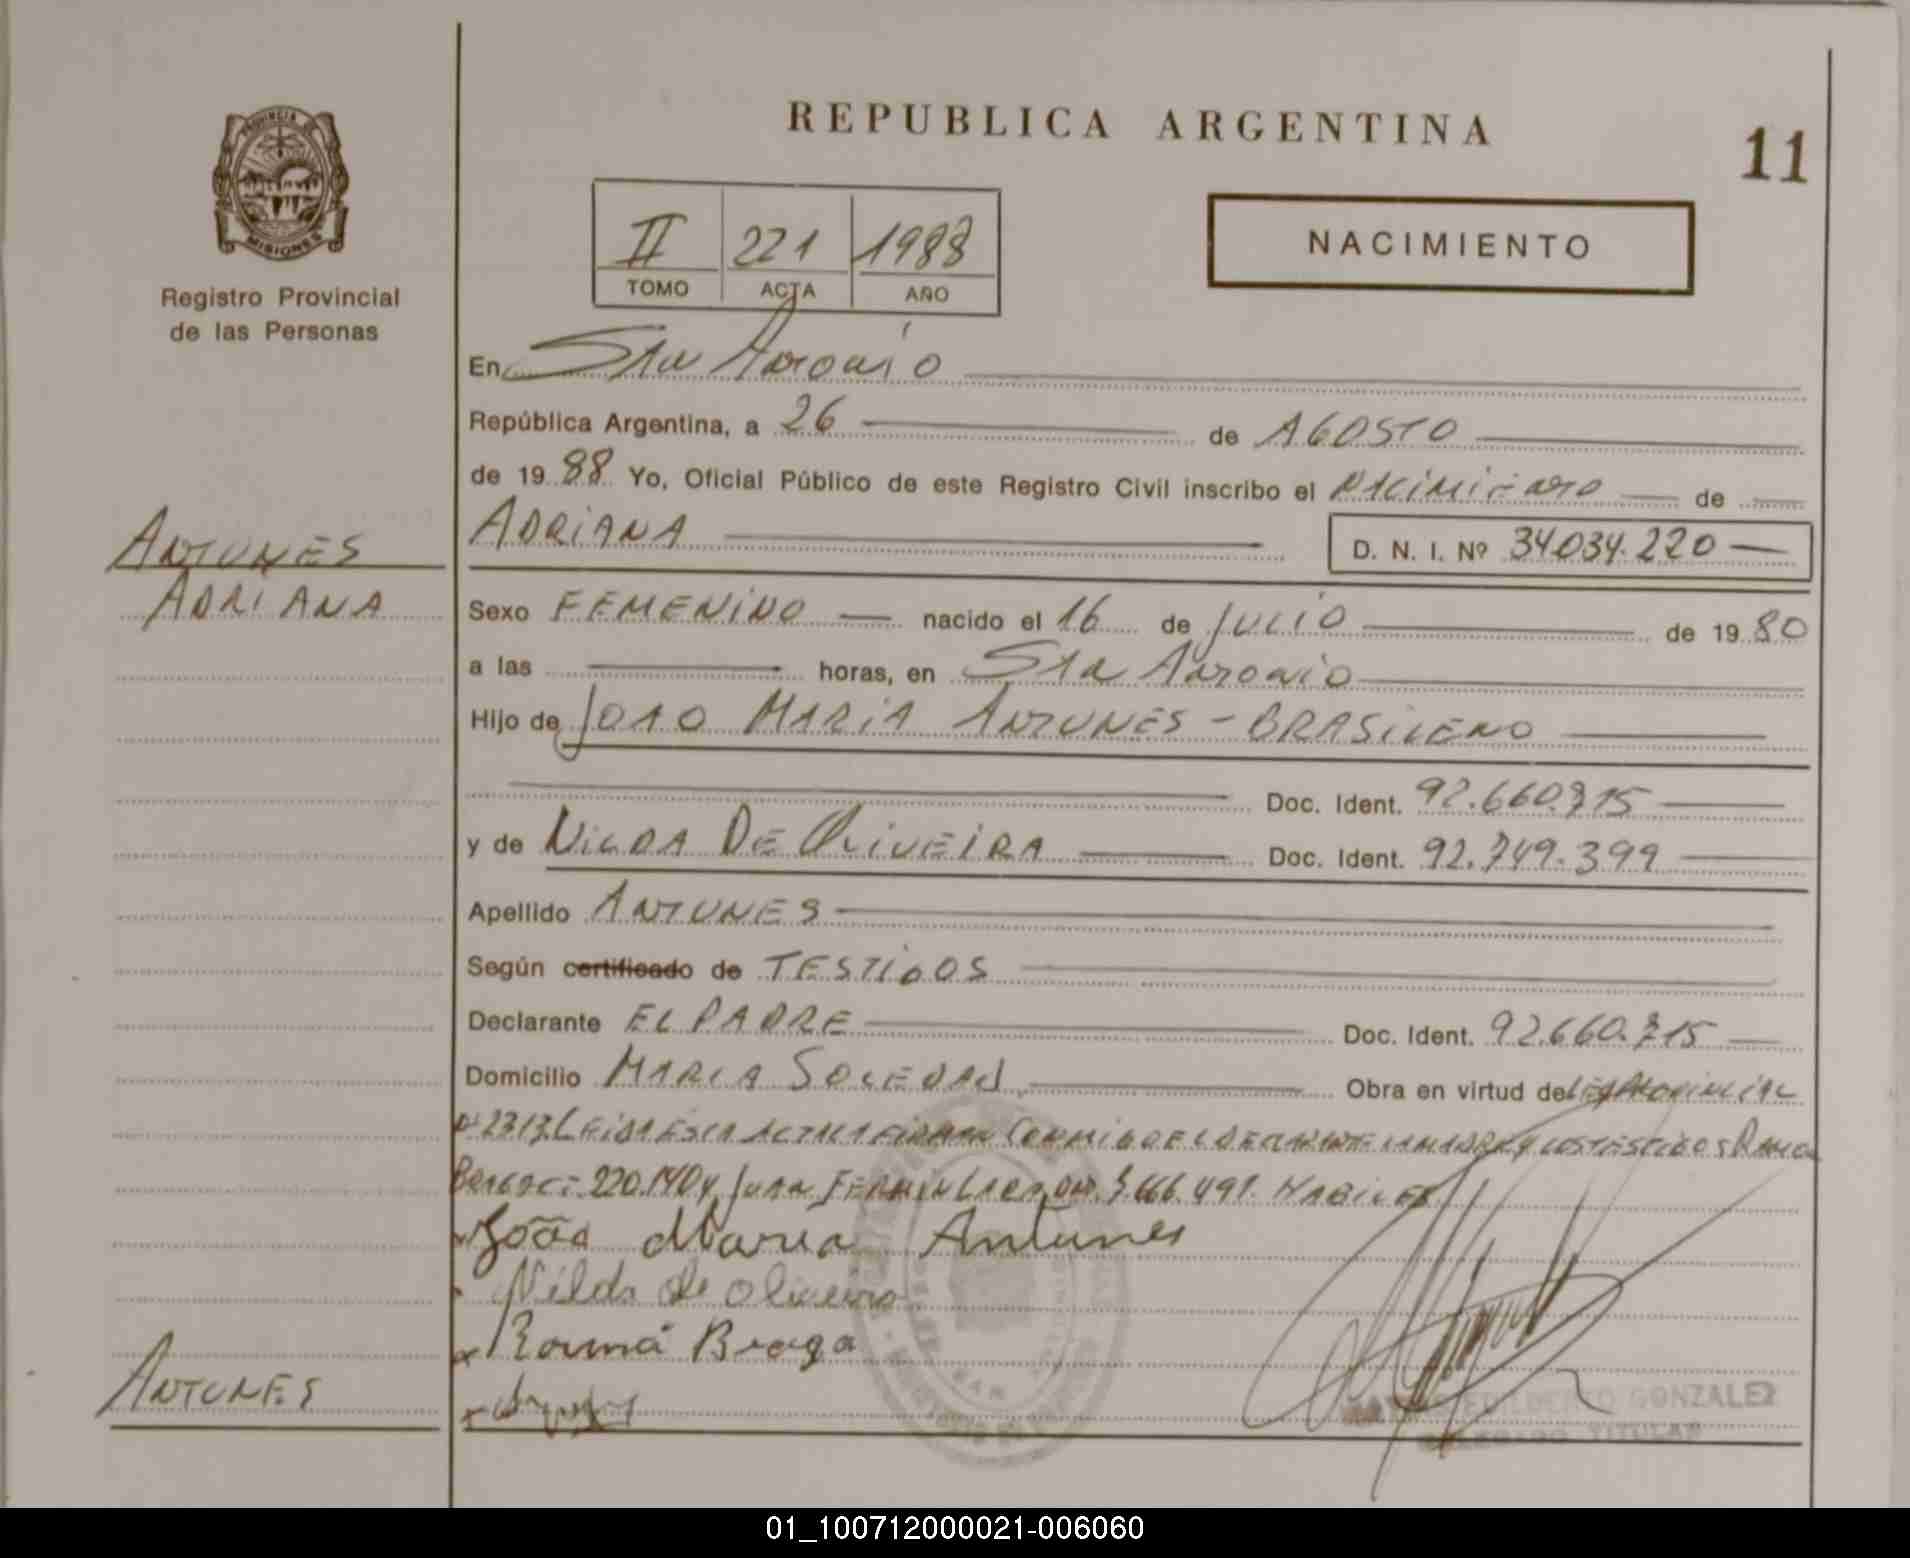 REPUBLICA ARGENTINA
11
PROVINCIA DE
MISIONES
Registro Provincial
de las Personas
II 221 1988
TOMO ACTA AÑO
NACIMIENTO
En Sta Antonio
República Argentina, a 26 de AGOSTO
de 1988 Yo, Oficial Público de este Registro Civil inscribo el NACIMIENTO de
ANTUNES
ADRIANA
ADRIANA
D. N. I. Nº 34.034.220
Sexo FEMENINO nacido el 16 de JULIO de 1980
a las horas, en Sta Antonio
Hijo de JOAO MARIA ANTUNES - BRASILENO
Doc. Ident. 92.660.715
y de NILDA DE OLIVEIRA Doc. Ident. 92.749.399
Apellido ANTUNES
Según certificado de TESTIGOS
Declarante EL PADRE Doc. Ident. 92.660.715
Domicilio MARIA SOLEDAD Obra en virtud de LEY PROVINCIAL
Nº 2313 LEIDA ESTA ACTA LA FIRMAN CONMIGO EL DECLARANTE LA MADRE Y LOS TESTIGOS RAMON
220.140 y JUAN FERMIN 666.491. HABILES
João Maria Antunes
Nilda de oliveira
Braga
ANTUNES
EDILBERTO GONZALEZ
DELEGADO TITULAR
01_100712000021-006060